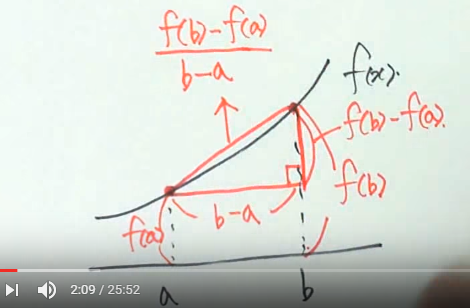 f(b)-f(a)
b-a
f(x).
f(b)-f(a).
f(b)
f(a)
b-a
a
b
2:09 / 25:52